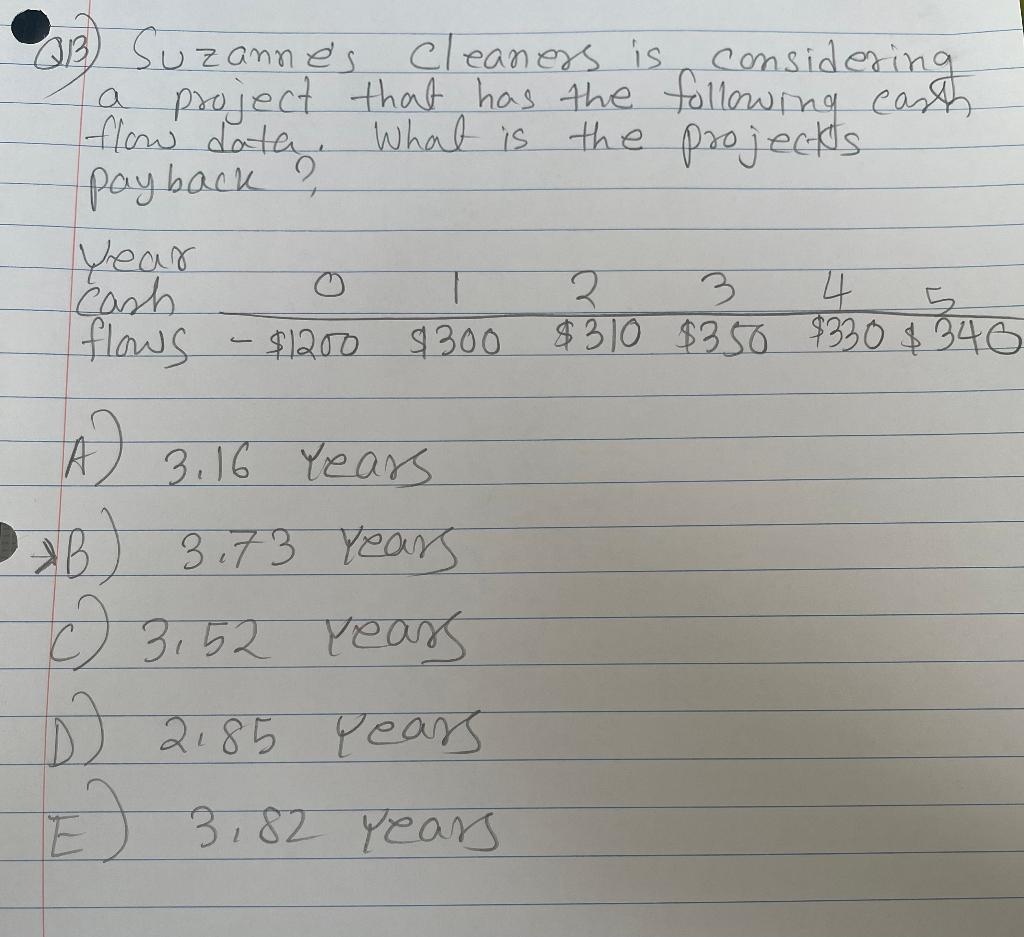 Q13) Suzanne's Cleaners is considering
a project that has the following cash
flow data. What is the project's
payback?
Year
Cash 0 1 2 3 4 5
flows -$1200 $300 $310 $350 $330 $340
A) 3.16 Years
→B) 3.73 Years
C) 3.52 Years
D) 2.85 Years
E) 3.82 Years